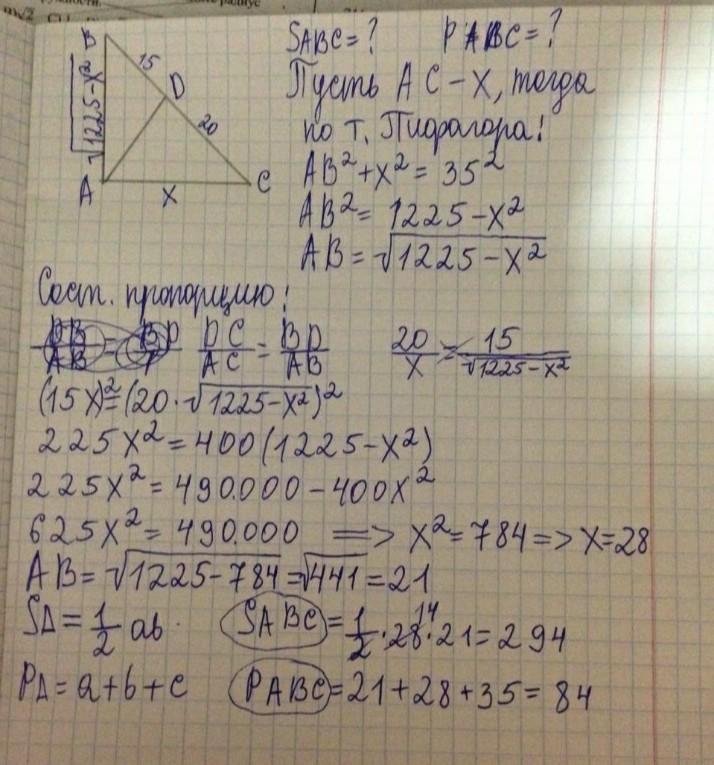 SABC=? PABC=?
Пусть AC-X, тогда
по т. Пифагора!
AB²+x²=35²
AB²=1225-x²
AB=√1225-x²
B
15
D
20
√1225-x²
A
X
C
Сост. пропорцию!
DC/AC=BD/AB 20/X=15/√1225-x²
(15x)²=(20·√1225-x²)²
225x²=400(1225-x²)
225x²=490.000-400x²
625x²=490.000 => x²=784=>x=28
AB=√1225-784=√441=21
SΔ=1/2 ab. SABC=1/2·28·21=294
14
PΔ=a+b+c PABC=21+28+35=84